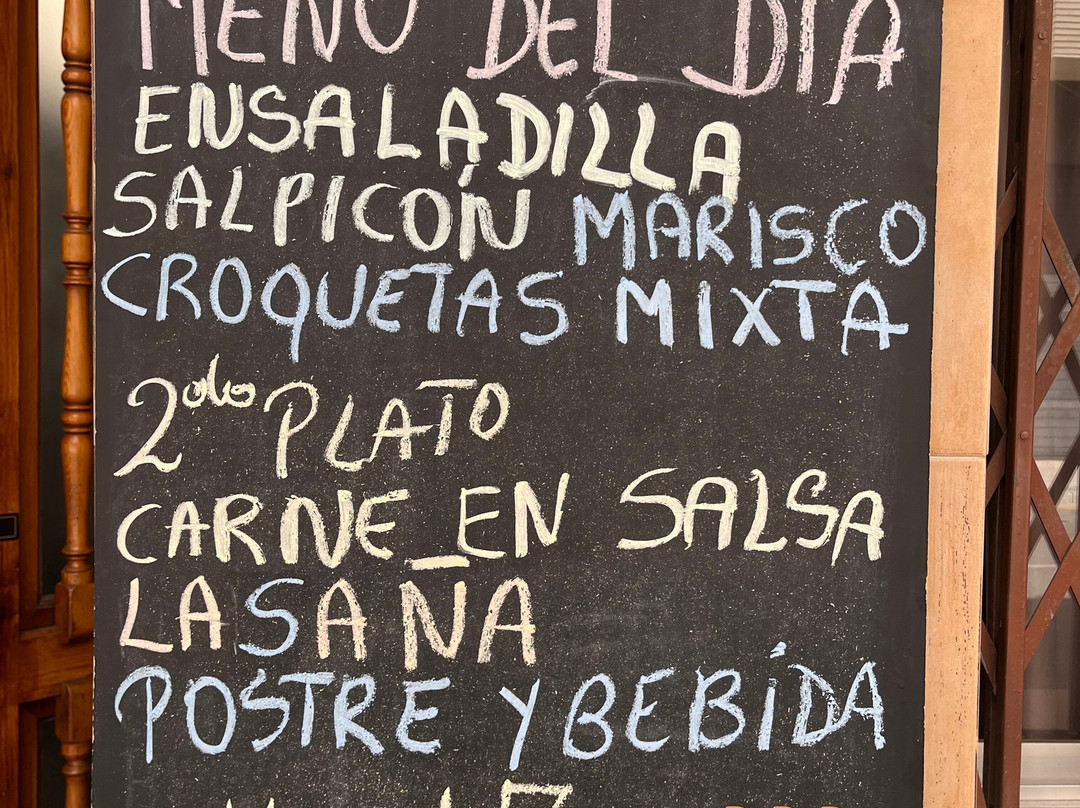 MENÚ DEL DÍA
ENSALADILLA
SALPICÓN MARISCO
CROQUETAS MIXTA
2do PLATO
CARNE EN SALSA
LASAÑA
POSTRE Y BEBÍDA